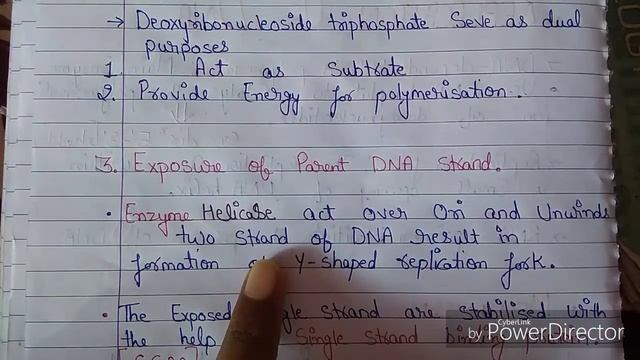 → Deoxyribonucleoside triphosphate Seve as dual
purposes
1. Act as Subtrate
2. Provide Energy for polymerisation.
3. Exposure of Parent DNA Strand.
• Enzyme Helicase act over Ori and Unwinds
two strand of DNA result in
formation Y-shaped replication fork.
• The Exposed Strand are stabilised with
the help Single Strand binding
by CyberLink PowerDirector